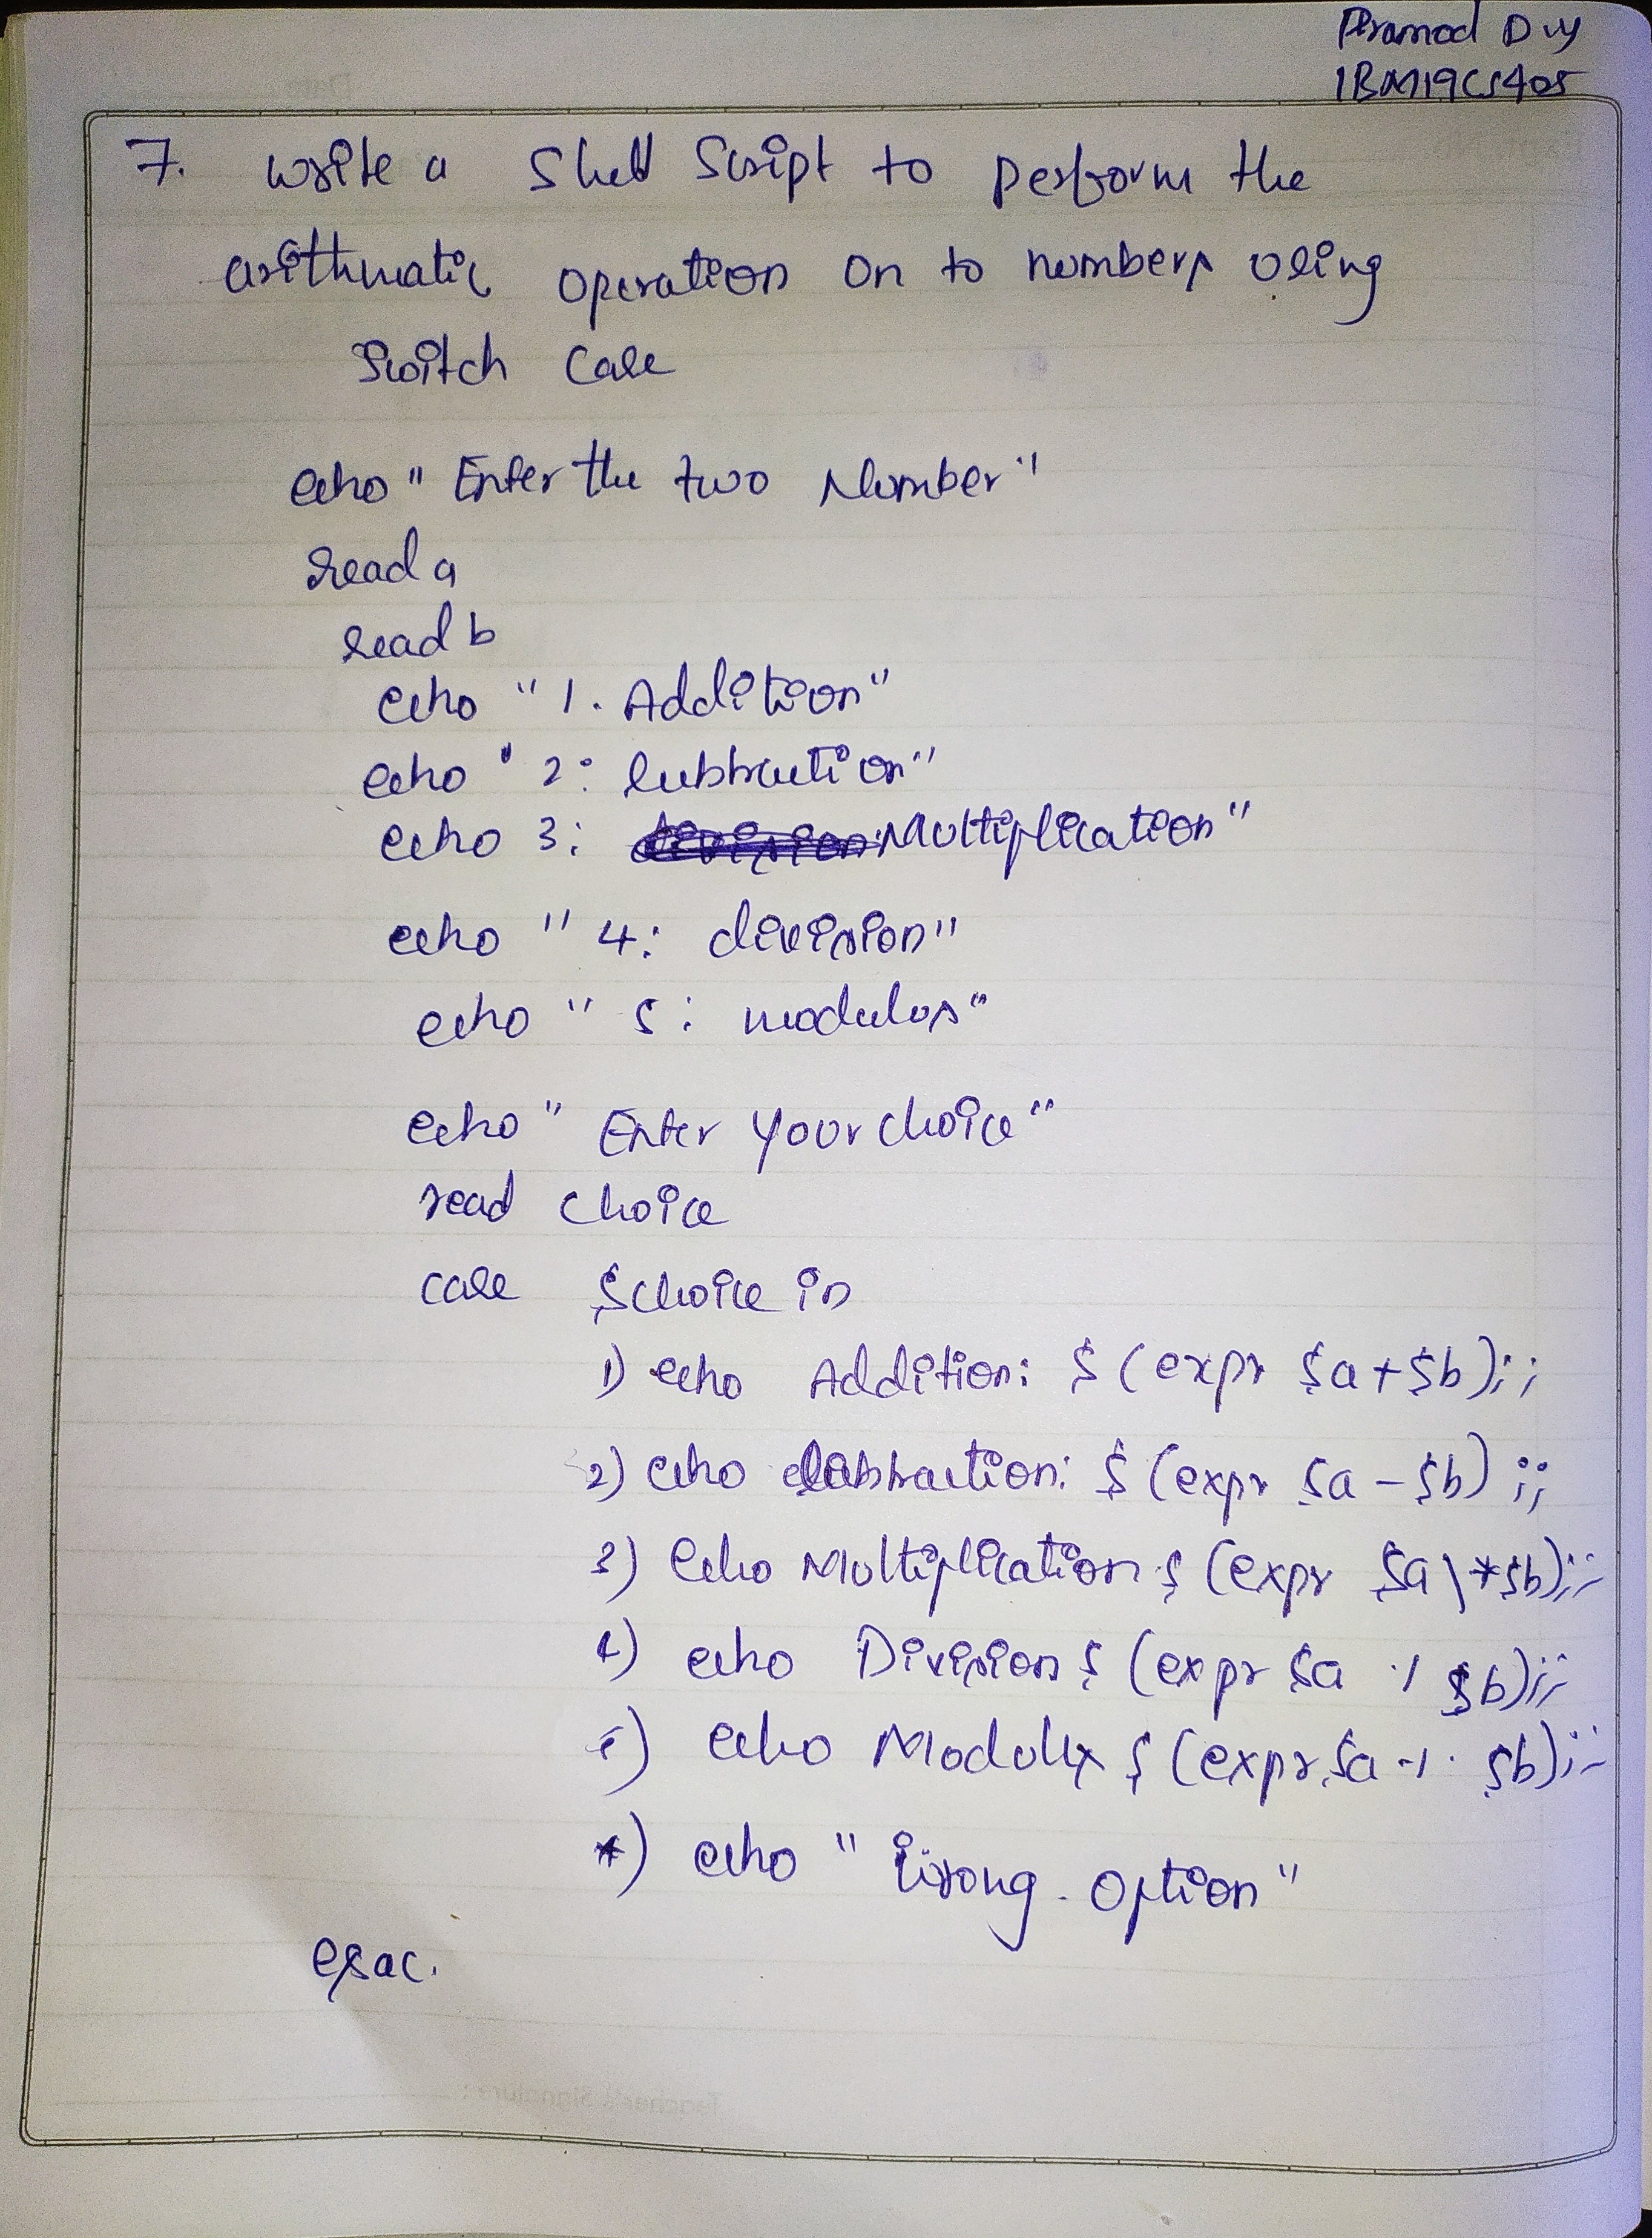 Pramod D vy
1BM19CS405
7. write a Shell Script to perform the
arithmatic operation on to numbers using
Switch Case
echo " Enter the two Number"
read a
read b
echo " 1. Addition"
echo ' 2: Subtraction"
echo 3: Multiplication"
echo " 4: division"
echo " 5: modulus"
echo " Enter your choice"
read choice
case $choice in
1) echo Addition: $ (expr $a + $b);;
2) echo Subtraction: $ (expr $a - $b) ;;
3) echo Multiplication $ (expr $a \*$b);;
4) echo Division $ (expr $a / $b);;
5) echo Modulus $ (expr $a % $b);;
*) echo " Wrong Option"
esac.